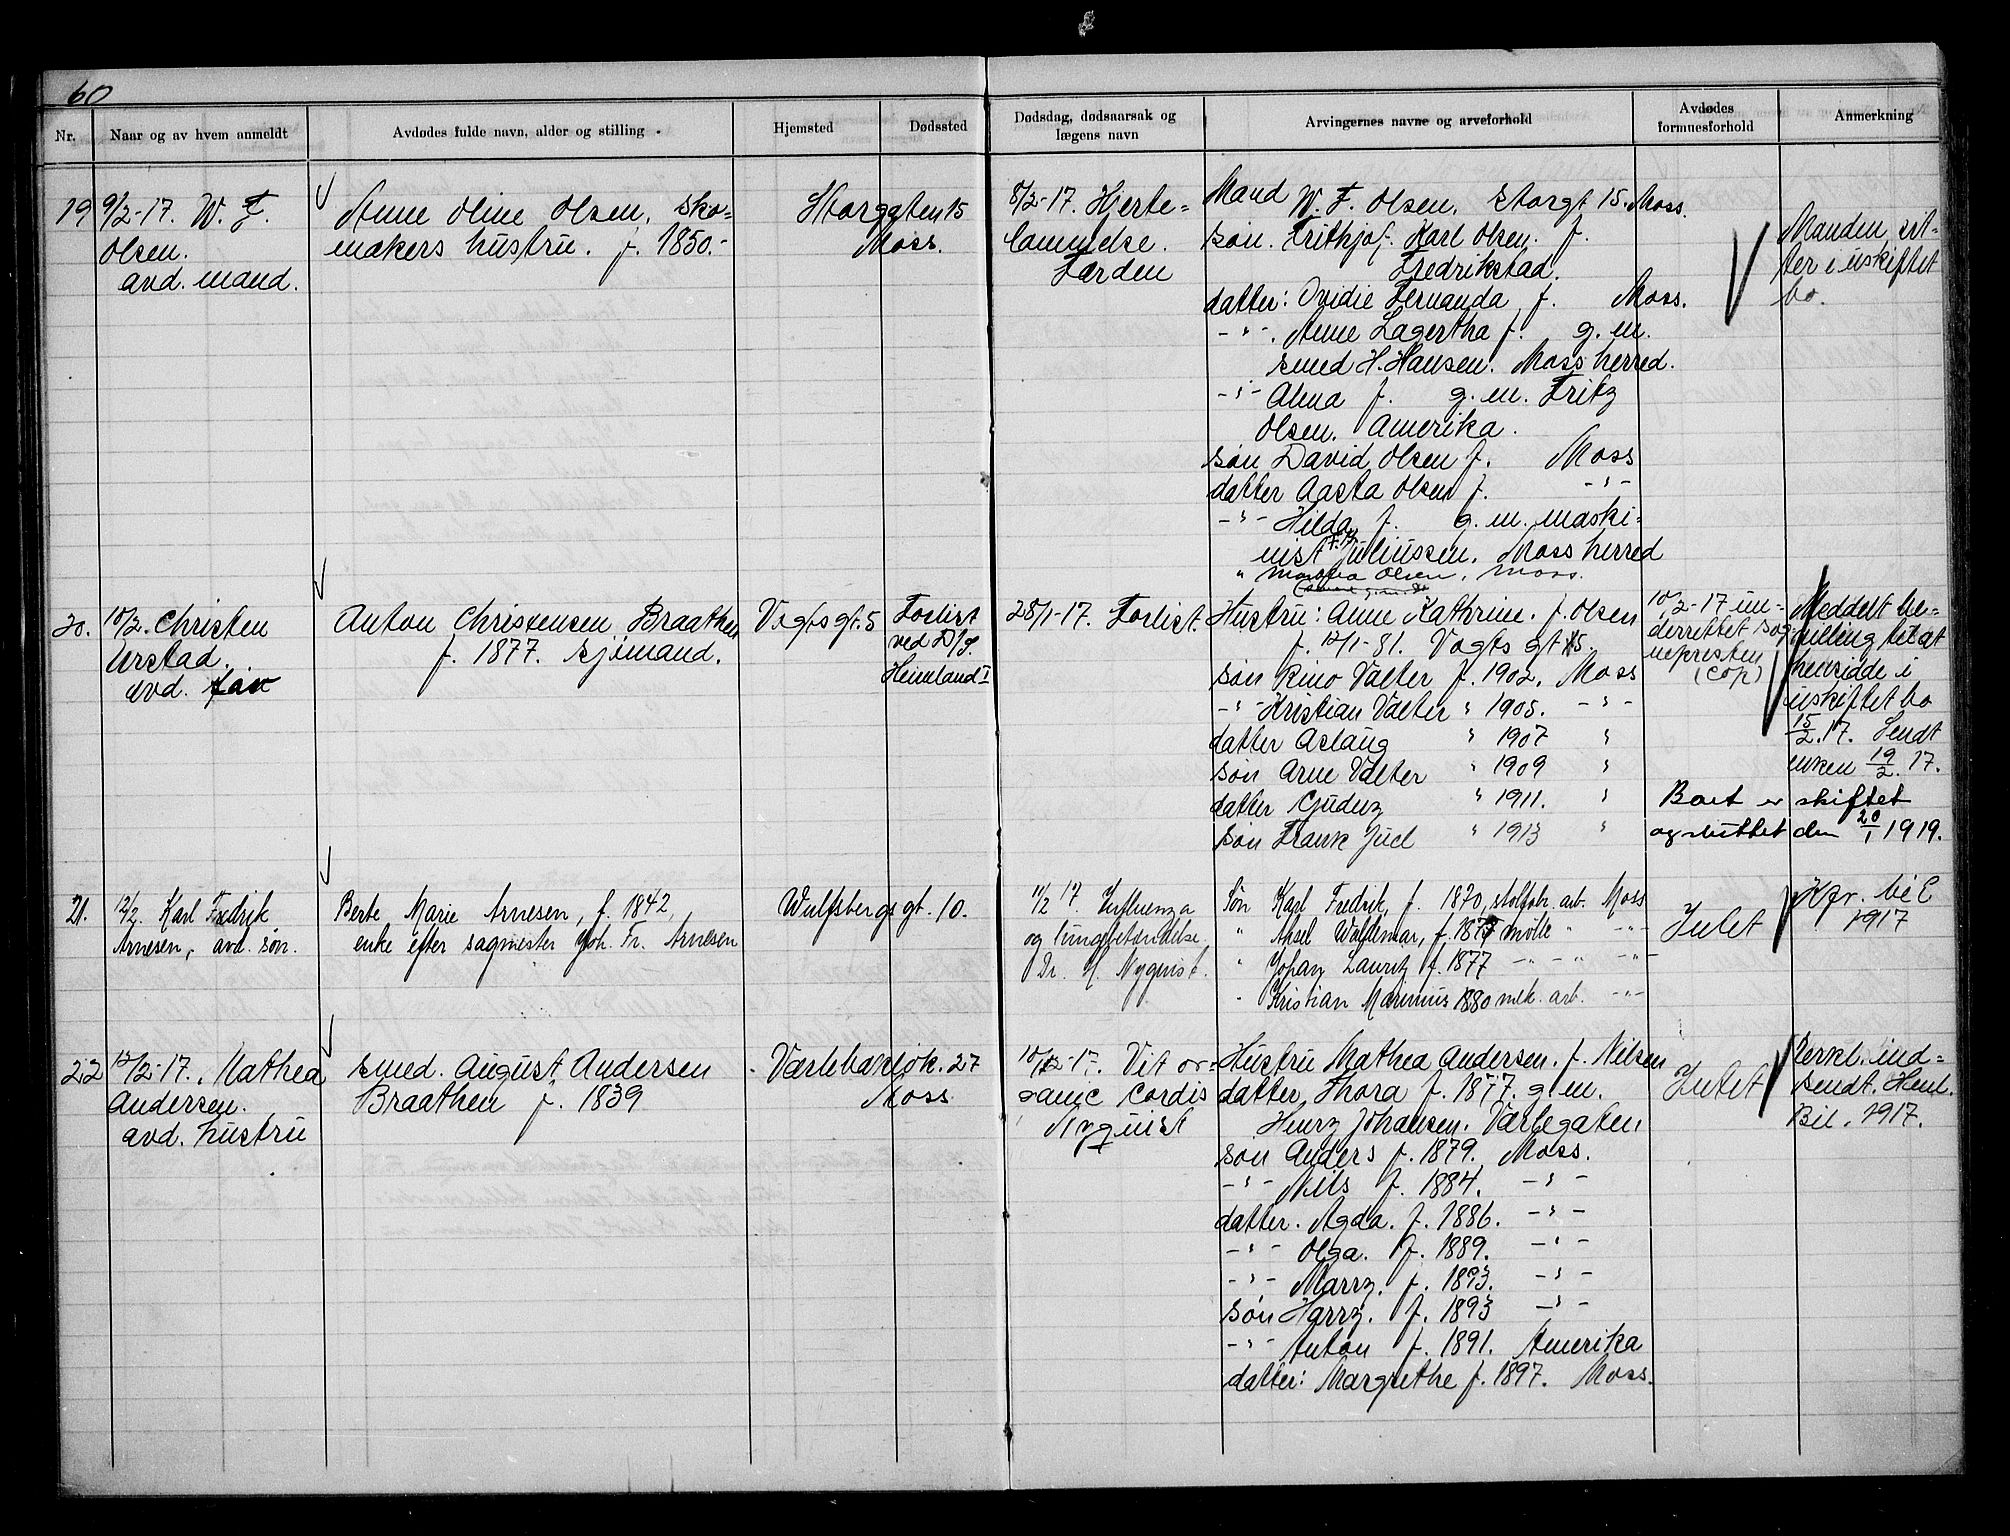 60
Nr.
Naar og av hvem anmeldt
Avdødes fulde navn, alder og stilling
Hjemsted
Dødssted
Dødsdag, dødsaarsak og
lægens navn
Arvingernes navne og arveforhold
Avdødes
formuesforhold
Anmerkning
19
9/2-17. W. F.
Olsen.
avd. mand.
Anne Oline Olsen, sko=
makers hustru. f. 1850.-
Storgaten 15
Moss.
8/2-17. Hjerte=
lammelse.
Færden
Mand W. F. Olsen. Storgt 15. Moss.
søn. Frithjof. Karl Olsen. f.
Fredrikstad.
datter: Ovidie Fernanda f. Moss.
-"-. Anne Lagertha f. g. m.
smed H. Hansen. Moss herred.
-"- Alma f. g. m. Fritz
Olsen. Amerika.
søn David Olsen f. Moss
datter Aasta Olsen f. -"-
-"- Hilda f. g. m. maski=
nist Juliussen. Moss herred
" Martha Olsen, Moss.
Manden sit=
ter i uskiftet
bo.
20.
10/2. Christen
Urstad.
avd. far
Anton Christensen Braathen
f. 1877. sjømand.
Vogtsgt. 5
Forlist
ved D/S.
Heimland I
28/1-17. Forlist.
Hustru: Anne Kathrine. f. Olsen
f. 12/1-81. Vogts gt 5.
søn Rino Valter f. 1902. Moss
-"- Kristian Valter " 1905. -"-
datter Aslaug " 1907 "
søn Arne Valter " 1909 "
datter Gjudny " 1911. "
søn Frank Juel " 1913 "
10/2-17 un=
derrettet sog-
nepresten
(cop)
Meddelt be=
villing til at
hensidde i
uskiftet bo
15/2.17. Sendt
enken 19/2.17.
Boet er skiftet
og sluttet den 20/1 1919.
21.
12/2. Karl Fredrik
Arnesen, avd. søn.
Berte Marie Arnesen, f. 1842,
enke efter sagmester Joh. Fr. Arnesen
Wulfsbergsgt. 10.
11/2 17. Influenza
og lungebetændelse.
Dr. H. Nyquist.
Søn Karl Fredrik, f. 1870, stolfabr. arb. Moss
" Aksel Waldemar, f. 187 mölle " -"-
" Johan Lauritz f. 1877 -"-"- -"-
" Kristian Marinius 1880 mek. arb. -"-
Intet
Kgr. bil
1917
22
12/2-17. Mathea
Andersen.
avd. hustru
smed. August Andersen
Braathen f. 1839
Værlebaksjok. 27
Moss
10/2-17. Vit or-
ganic cordis
Nyquist
Hustru Mathea Andersen. f. Nilsen
datter Thora f. 1877. g. m.
Henry Johansen. Værlegaten
søn Anders f. 1879. Moss.
-"- Nils f. 1884. -"-
datter. Agda. f. 1886. -"-
-"- Olga. f. 1889. -"-
-"- Marry. f. 1893. -"-
søn Harry. f. 1893 -"-
-"- Anton f. 1891. Amerika
datter: Margrethe f. 1897. Moss.
Intet
Perkl. ind=
sendt. Henl.
Bil. 1917.